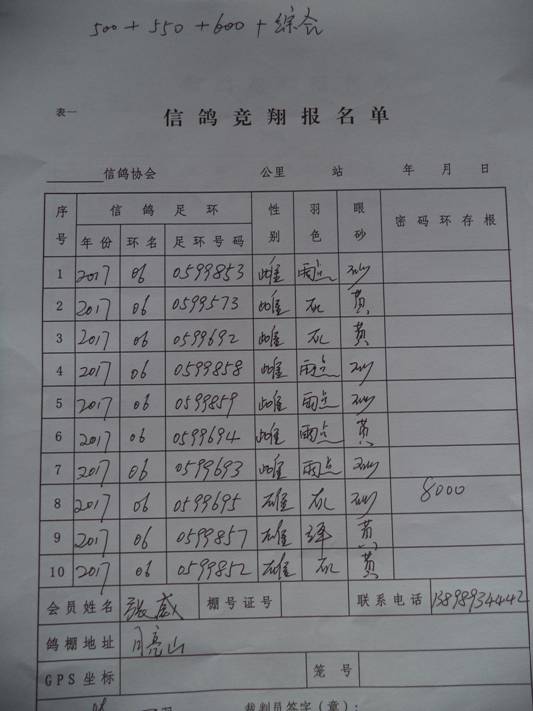 500 + 550 + 600 + 综合
表一
信鸽竞翔报名单
信鸽协会 公里 站 年 月 日
序号 信鸽足环 性别 羽色 眼砂 密码环存根
年份 环名 足环号码
1 2017 06 0599853 雌 雨点 砂
2 2017 06 0599573 雌 灰 黄
3 2017 06 0599692 雌 灰 黄
4 2017 06 0599858 雌 雨点 砂
5 2017 06 0599859 雌 雨点 砂
6 2017 06 0599694 雌 雨点 黄
7 2017 06 0599693 雌 雨点 砂
8 2017 06 0599695 雄 灰 砂 8000
9 2017 06 0599857 雄 绛 黄
10 2017 06 0599852 雄 灰 黄
会员姓名 张威 棚号证号 联系电话 13898934442
鸽棚地址 月亮山
GPS坐标 笼号
裁判员签字（章）：